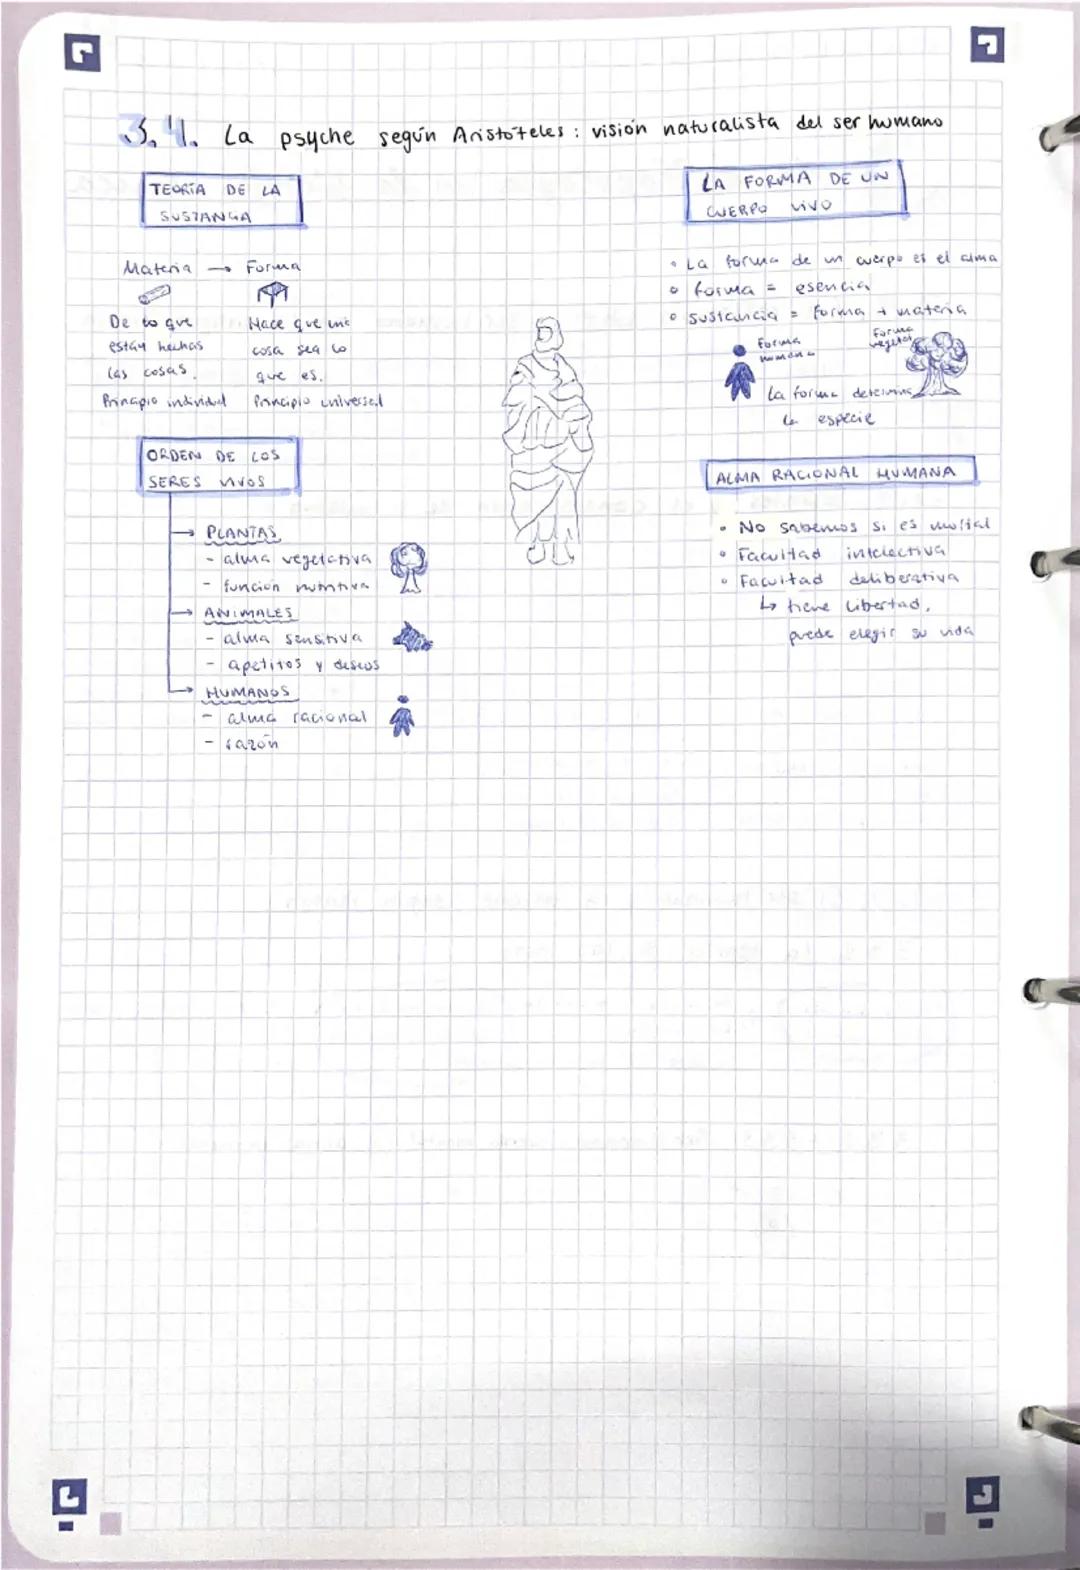 3.4. La psyche según Aristóteles : visión naturalista del ser humano
TEORÍA DE LA
SUSTANCIA
Materia → Forma
De lo que
están hechas
las cosas.
Principio individual
Hace que una
cosa sea lo
que es.
Principio universal
ORDEN DE LOS
SERES VIVOS
→ PLANTAS
- alma vegetativa
- función nutritiva
→ ANIMALES
- alma sensitiva
- apetitos y deseos
→ HUMANOS
- alma racional
- razón
LA FORMA DE UN
CUERPO VIVO
• La forma de un cuerpo es el alma
• forma = esencia
• sustancia = forma + materia
Forma
humana
Forma
vegetal
La forma determina
la especie
ALMA RACIONAL HUMANA
• No sabemos si es mortal
• Facultad intelectiva
• Facultad deliberativa
↳ tiene libertad,
puede elegir su vida